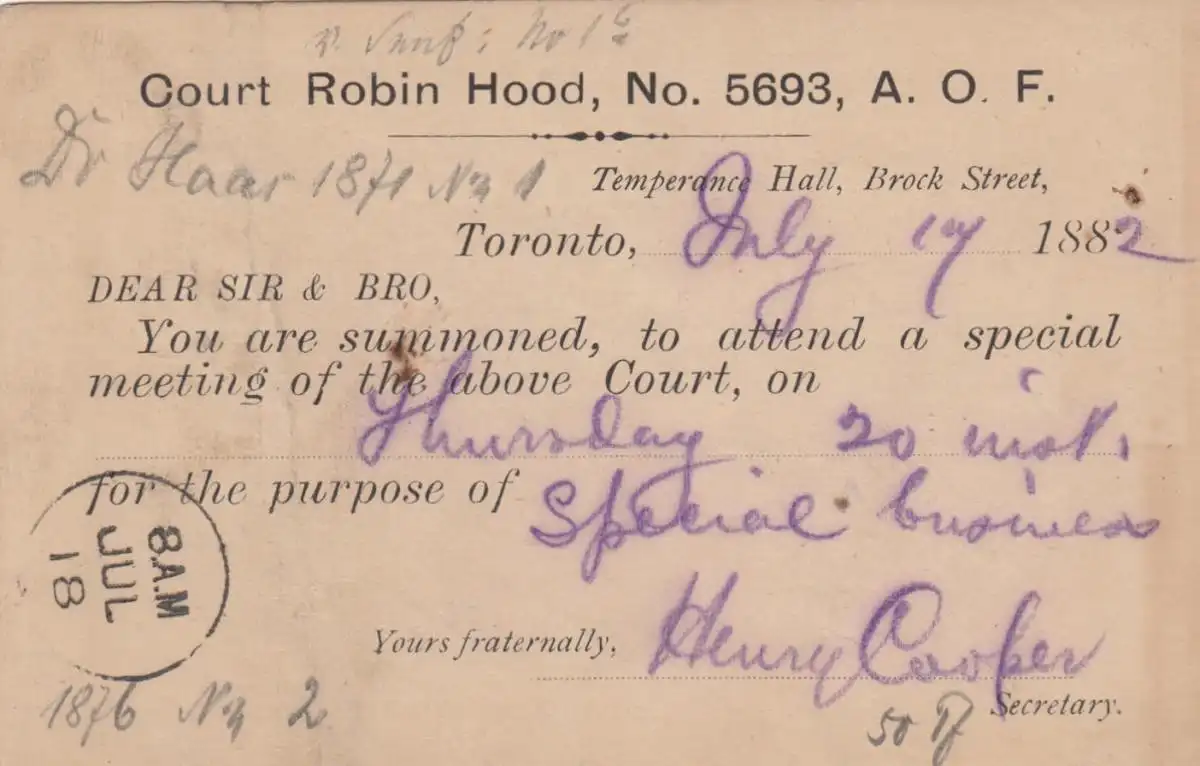 v. : No 1c
Court Robin Hood, No. 5693, A. O. F.
Dr Haas 1871 No 1
Temperance Hall, Brock Street,
Toronto, July 17 1882
DEAR SIR & BRO,
You are summoned, to attend a special
meeting of the above Court, on
Thursday 20 inst.
for the purpose of Special business
8.A.M
JUL
18
Yours fraternally, Henry Cooper
Secretary.
1876 No 2
50 Pf